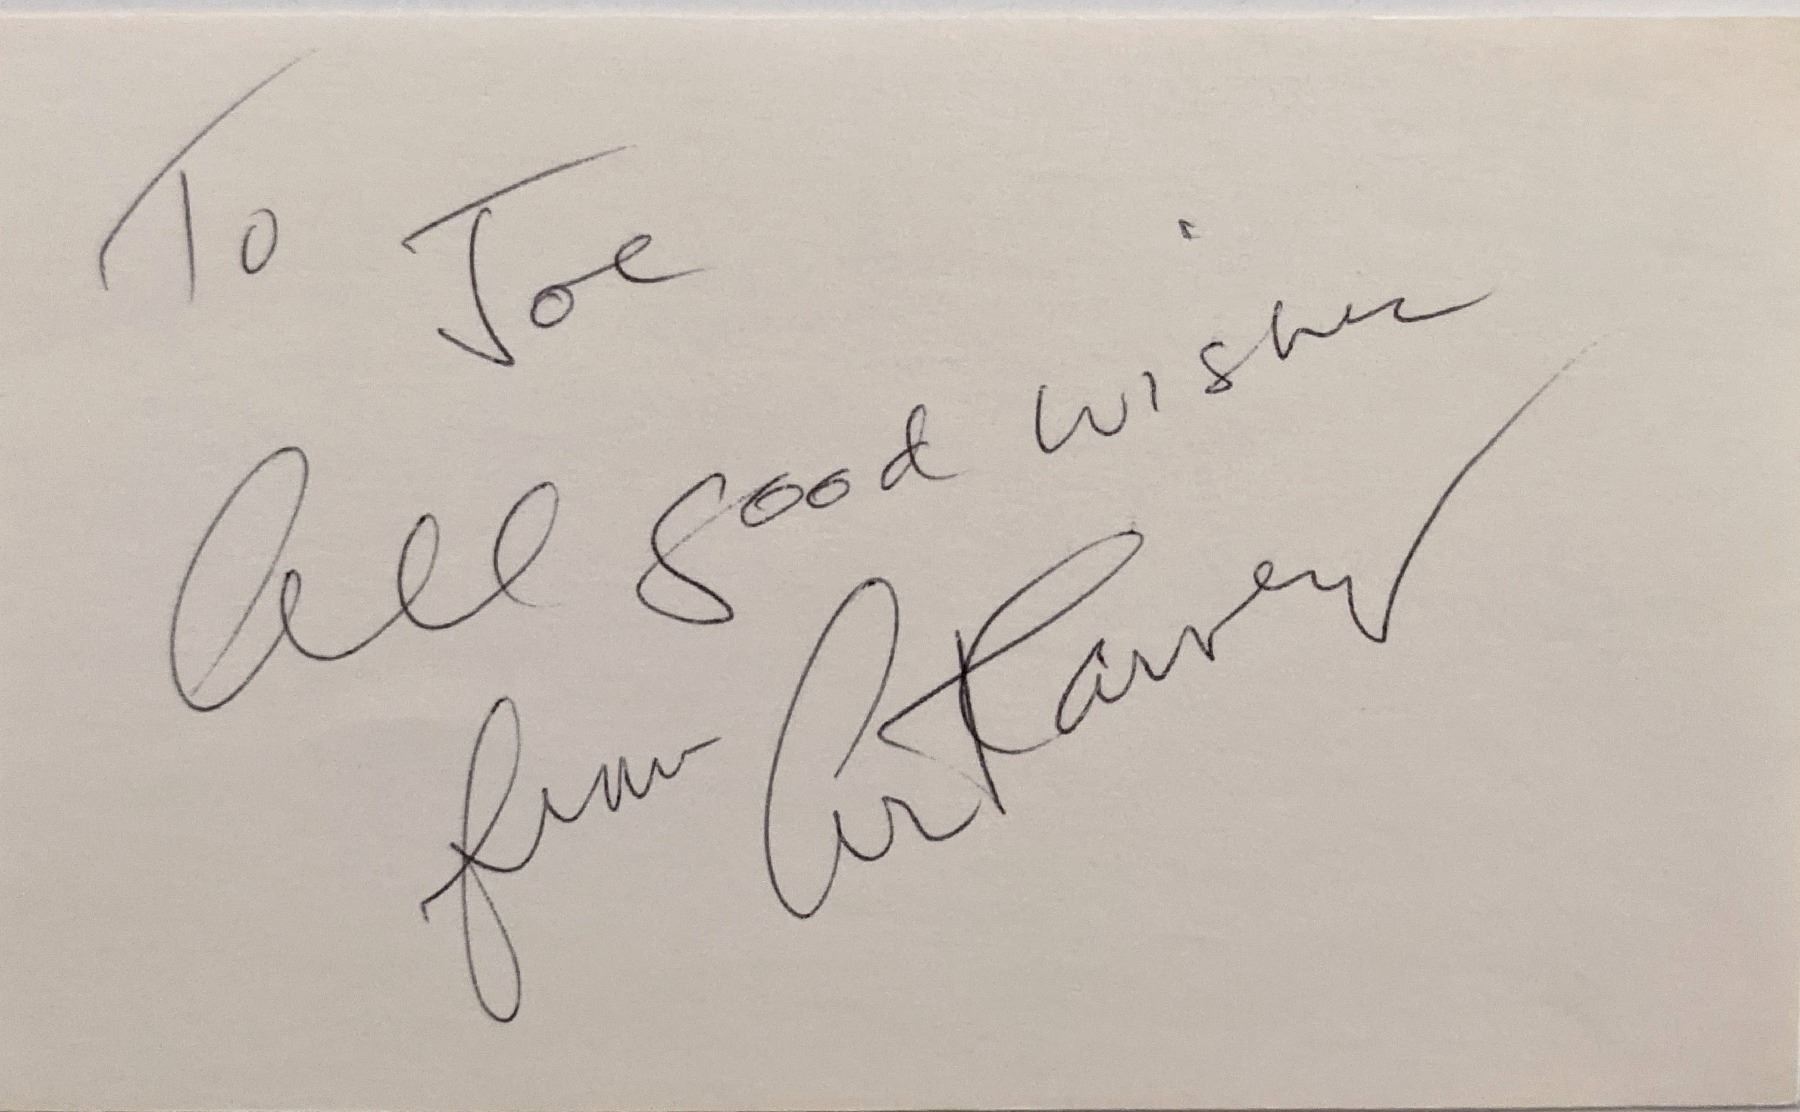 To Joe
All good wishes
from Art Carney